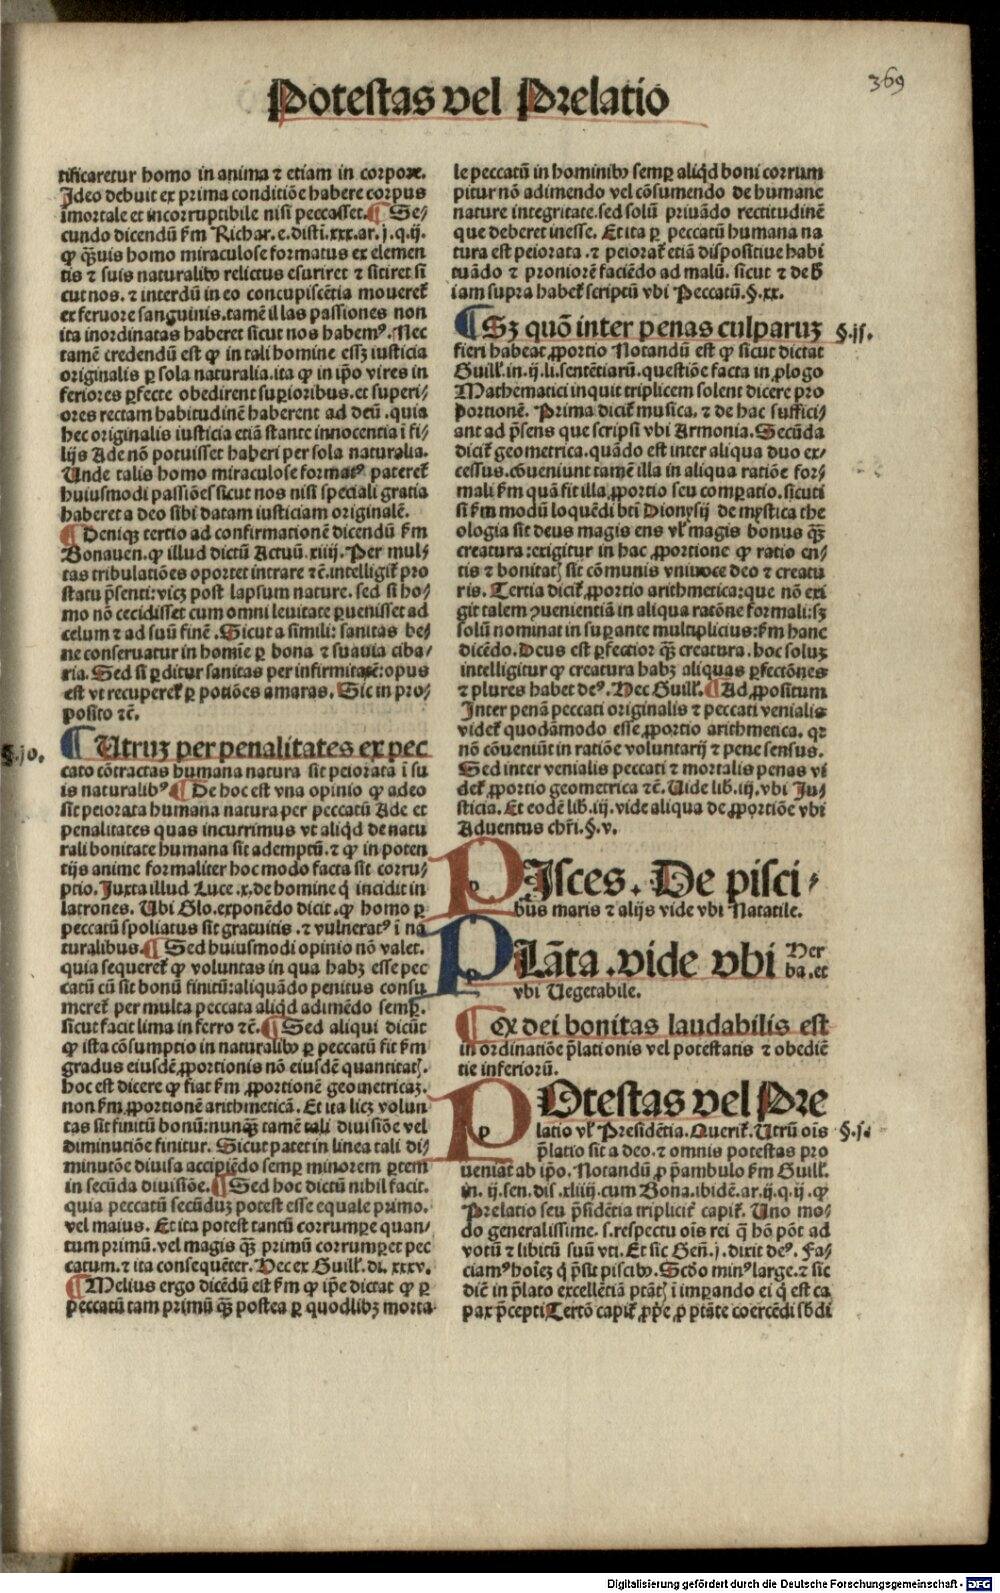 369
Potestas vel Prelatio
tificaretur homo in anima ⁊ etiam in corpore.
Ideo debuit ex prima conditiõe habere corpus
ĩmortale et incorruptibile nisi peccasset. ¶ Se⸗
cundo dicendũ ẜm Richar. e. disti. xxx. ar. j. q. ij.
ꝙ q̃uis homo miraculose formatus ex elemen
tis ⁊ suis naturalibꝰ relictus esuriret ⁊ sitiret si
cut nos. ⁊ interdũ in eo concupiscẽtia moueret̃
ex feruore sanguinis. tamẽ illas passiones non
ita inordinatas haberet sicut nos habemꝰ. Nec
tamẽ credendũ est ꝙ in tali homine essꝫ iusticia
originalis ꝑ sola naturalia. ita ꝙ in ip̃o vires in
feriores ꝑfecte obedirent suꝑioribus. et superi⸗
ores rectam habitudinẽ haberent ad deũ. quia
hec originalis iusticia etiã stante innocentia ĩ fi⸗
lijs Ade nõ potuisset haberi per sola naturalia.
Unde talis homo miraculose formatꝰ pateret̃
huiusmodi passiões sicut nos nisi speciali gratia
haberet a deo sibi datam iusticiam originalẽ.
¶ Deniqꝫ tertio ad confirmationẽ dicendũ ẜm
Bonauen. ꝙ illud dictũ Actuũ. xiiij. Per mul⸗
tas tribulatiões oportet intrare ⁊c̃. intelligit̃ pro
statu p̃senti: vicꝫ post lapsum nature. sed si ho⸗
mo nõ cecidisset cum omni leuitate ꝑuenisset ad
celum ⁊ ad suũ finẽ. Sicut a simili: sanitas be⸗
ne conseruatur in homĩe ꝑ bona ⁊ suauia ciba⸗
ria. Sed si ꝑditur sanitas per infirmitatẽ: opus
est vt recuperet̃ ꝑ potiões amaras. Sic in pro⸗
posito ⁊c̃.
§. jo.
¶ Utruꝫ per penalitates ex pec
cato cõtractas humana natura sit peiorata ĩ su
is naturalibꝰ ¶ De hoc est vna opinio ꝙ adeo
sit peiorata humana natura per peccatũ Ade et
penalitates quas incurrimus vt aliqd de natu
rali bonitate humana sit ademptũ. ⁊ ꝙ in poten
tijs anime formaliter hoc modo facta sit corru⸗
ptio. Iuxta illud Luce. x. de homine q̃ incidit in
latrones. Ubi Glo. exponẽdo dicit. ꝙ homo ꝑ
peccatũ spoliatus sit gratuitis. ⁊ vulneratꝰ ĩ na
turalibus. ¶ Sed huiusmodi opinio nõ valet.
quia sequeret̃ ꝙ voluntas in qua habꝫ esse pec
catũ cũ sit bonũ finitũ: aliquãdo penitus consu
meret̃ per multa peccata aliqd adimẽdo semꝑ.
sicut facit lima in ferro ⁊c̃. ¶ Sed aliqui dicũt
ꝙ ista cõsumptio in naturalibꝰ ꝑ peccatũ fit ẜm
gradus eiusdẽ ꝓportionis nõ eiusdẽ quantitatꝭ.
hoc est dicere ꝙ fiat ẜm ꝓportionẽ geometricaꝫ.
non ẜm ꝓportionẽ arithmeticã. Et ita licꝫ volun
tas sit finitũ bonũ: nunq̃ tamẽ tali diuisiõe vel
diminutiõe finitur. Sicut patet in linea tali di⸗
minutõe diuisa accipiẽdo semꝑ minorem ꝑtem
in secũda diuisiõe. ¶ Sed hoc dictũ nihil facit.
quia peccatũ secũduꝫ potest esse equale primo.
vel maius. Et ita potest tantũ corrumpe quan⸗
tum primũ. vel magis q̃ primũ corrumꝑet pec
catum. ⁊ ita consequẽter. Hec ex Guill̃. di. xxxv.
¶ Melius ergo dicẽdũ est ẜm ꝙ ip̃e dictat ꝙ ꝑ
peccatũ tam primũ q̃ postea ꝑ quodlibꝫ morta
le peccatũ in hominibꝰ semꝑ aliqd boni corrum
pitur nõ adimendo vel cõsumendo de humane
nature integritate. sed solũ priuãdo rectitudinẽ
que deberet inesse. Et ita ꝑ peccatũ humana na
tura est peiorata. ⁊ peiorat̃ etiã dispositiue habi
tuãdo ⁊ proniorẽ faciẽdo ad malũ. sicut ⁊ de h̃
iam supra habet̃ scriptũ vbi Peccatũ. §. xx.
¶ Sꝫ quõ inter penas culparuꝫ §. jj.
fieri habeat ꝓportio Notandũ est ꝙ sicut dictat
Guill̃. in. ij. li. sentẽtiarũ. questiõe facta in ꝓlogo
Mathematici inquit triplicem solent dicere pro
portionẽ. Prima dicit̃ musica. ⁊ de hac suffici⸗
ant ad p̃sens que scripsi vbi Armonia. Secũda
dicit̃ geometrica. quãdo est inter aliqua duo ex⸗
cessus. cõueniunt tamẽ illa in aliqua ratiõe for⸗
mali ẜm quã fit illa ꝓportio seu comꝑatio. sicuti
si ẜm modũ loquẽdi bt̃i Dionysij de mystica the
ologia sit deus magis ens vl̃ magis bonus q̃
creatura: exigitur in hac ꝓportione ꝙ ratio en⸗
tis ⁊ bonitatꝭ sit cõmunis vniuoce deo ⁊ creatu
ris. Tertia dicit̃ ꝓportio arithmetica: que nõ exi
git talem ꝯuenientiã in aliqua ratõne formali: sꝫ
solũ nominat in suꝑante multiplicius: ẜm hanc
dicẽdo. Deus est ꝑfectior q̃ creatura. hoc soluꝫ
intelligitur ꝙ creatura habꝫ aliquas ꝑfectõnes
⁊ plures habet deꝰ. Hec Guill̃. ¶ Ad ꝓpositum
Inter penã peccati originalis ⁊ peccati venialis
videt̃ quodãmodo esse ꝓportio arithmetica. qꝛ
nõ cõueniũt in ratiõe voluntarij ⁊ pene sensus.
Sed inter venialis peccati ⁊ mortalis penas vi
det̃ ꝓportio geometrica ⁊c̃. Uide lib. iij. vbi Iu⸗
sticia. Et eodẽ lib. iij. vide aliqua de ꝓportiõe vbi
Aduentus chr̃i. §. v.
PIsces. De pisci⸗
bus maris ⁊ alijs vide vbi Natatile.
PLãta. vide vbi Her
ba. et
vbi Uegetabile.
¶ Ex dei bonitas laudabilis est
in ordinatiõe p̃lationis vel potestatis ⁊ obediẽ
tie inferiorũ.
POtestas vel Pre
latio vl̃ Presidẽtia. Querit̃. Utrũ oĩs §. j.
p̃latio sit a deo. ⁊ omnis potestas pro
ueniat ab ip̃o. Notandũ ꝓ p̃ambulo ẜm Guill̃.
in. ij. sen. dis. xliiij. cum Bona. ibidẽ. ar. ij. q. ij. ꝙ
Prelatio seu p̃sidẽtia triplicit̃ capit̃. Uno mo⸗
do generalissime. s. respectu oĩs rei q̃ hõ põt ad
votũ ⁊ libitũ suũ vti. Et sic Geñ. j. dixit deꝰ. Fa⸗
ciamꝰ hoĩeꝫ q̃ p̃sit piscibꝰ. Scd̃o minꝰ large. ⁊ sic
dic̃ in p̃lato excellẽtia ptãtꝭ ĩ imꝑando ei q̃ est ca
pax p̃cepti Tertõ capit̃ ꝓp̃e ꝓ ptãte coercẽdi sb̃di
Digitalisierung gefördert durch die Deutsche Forschungsgemeinschaft - DFG